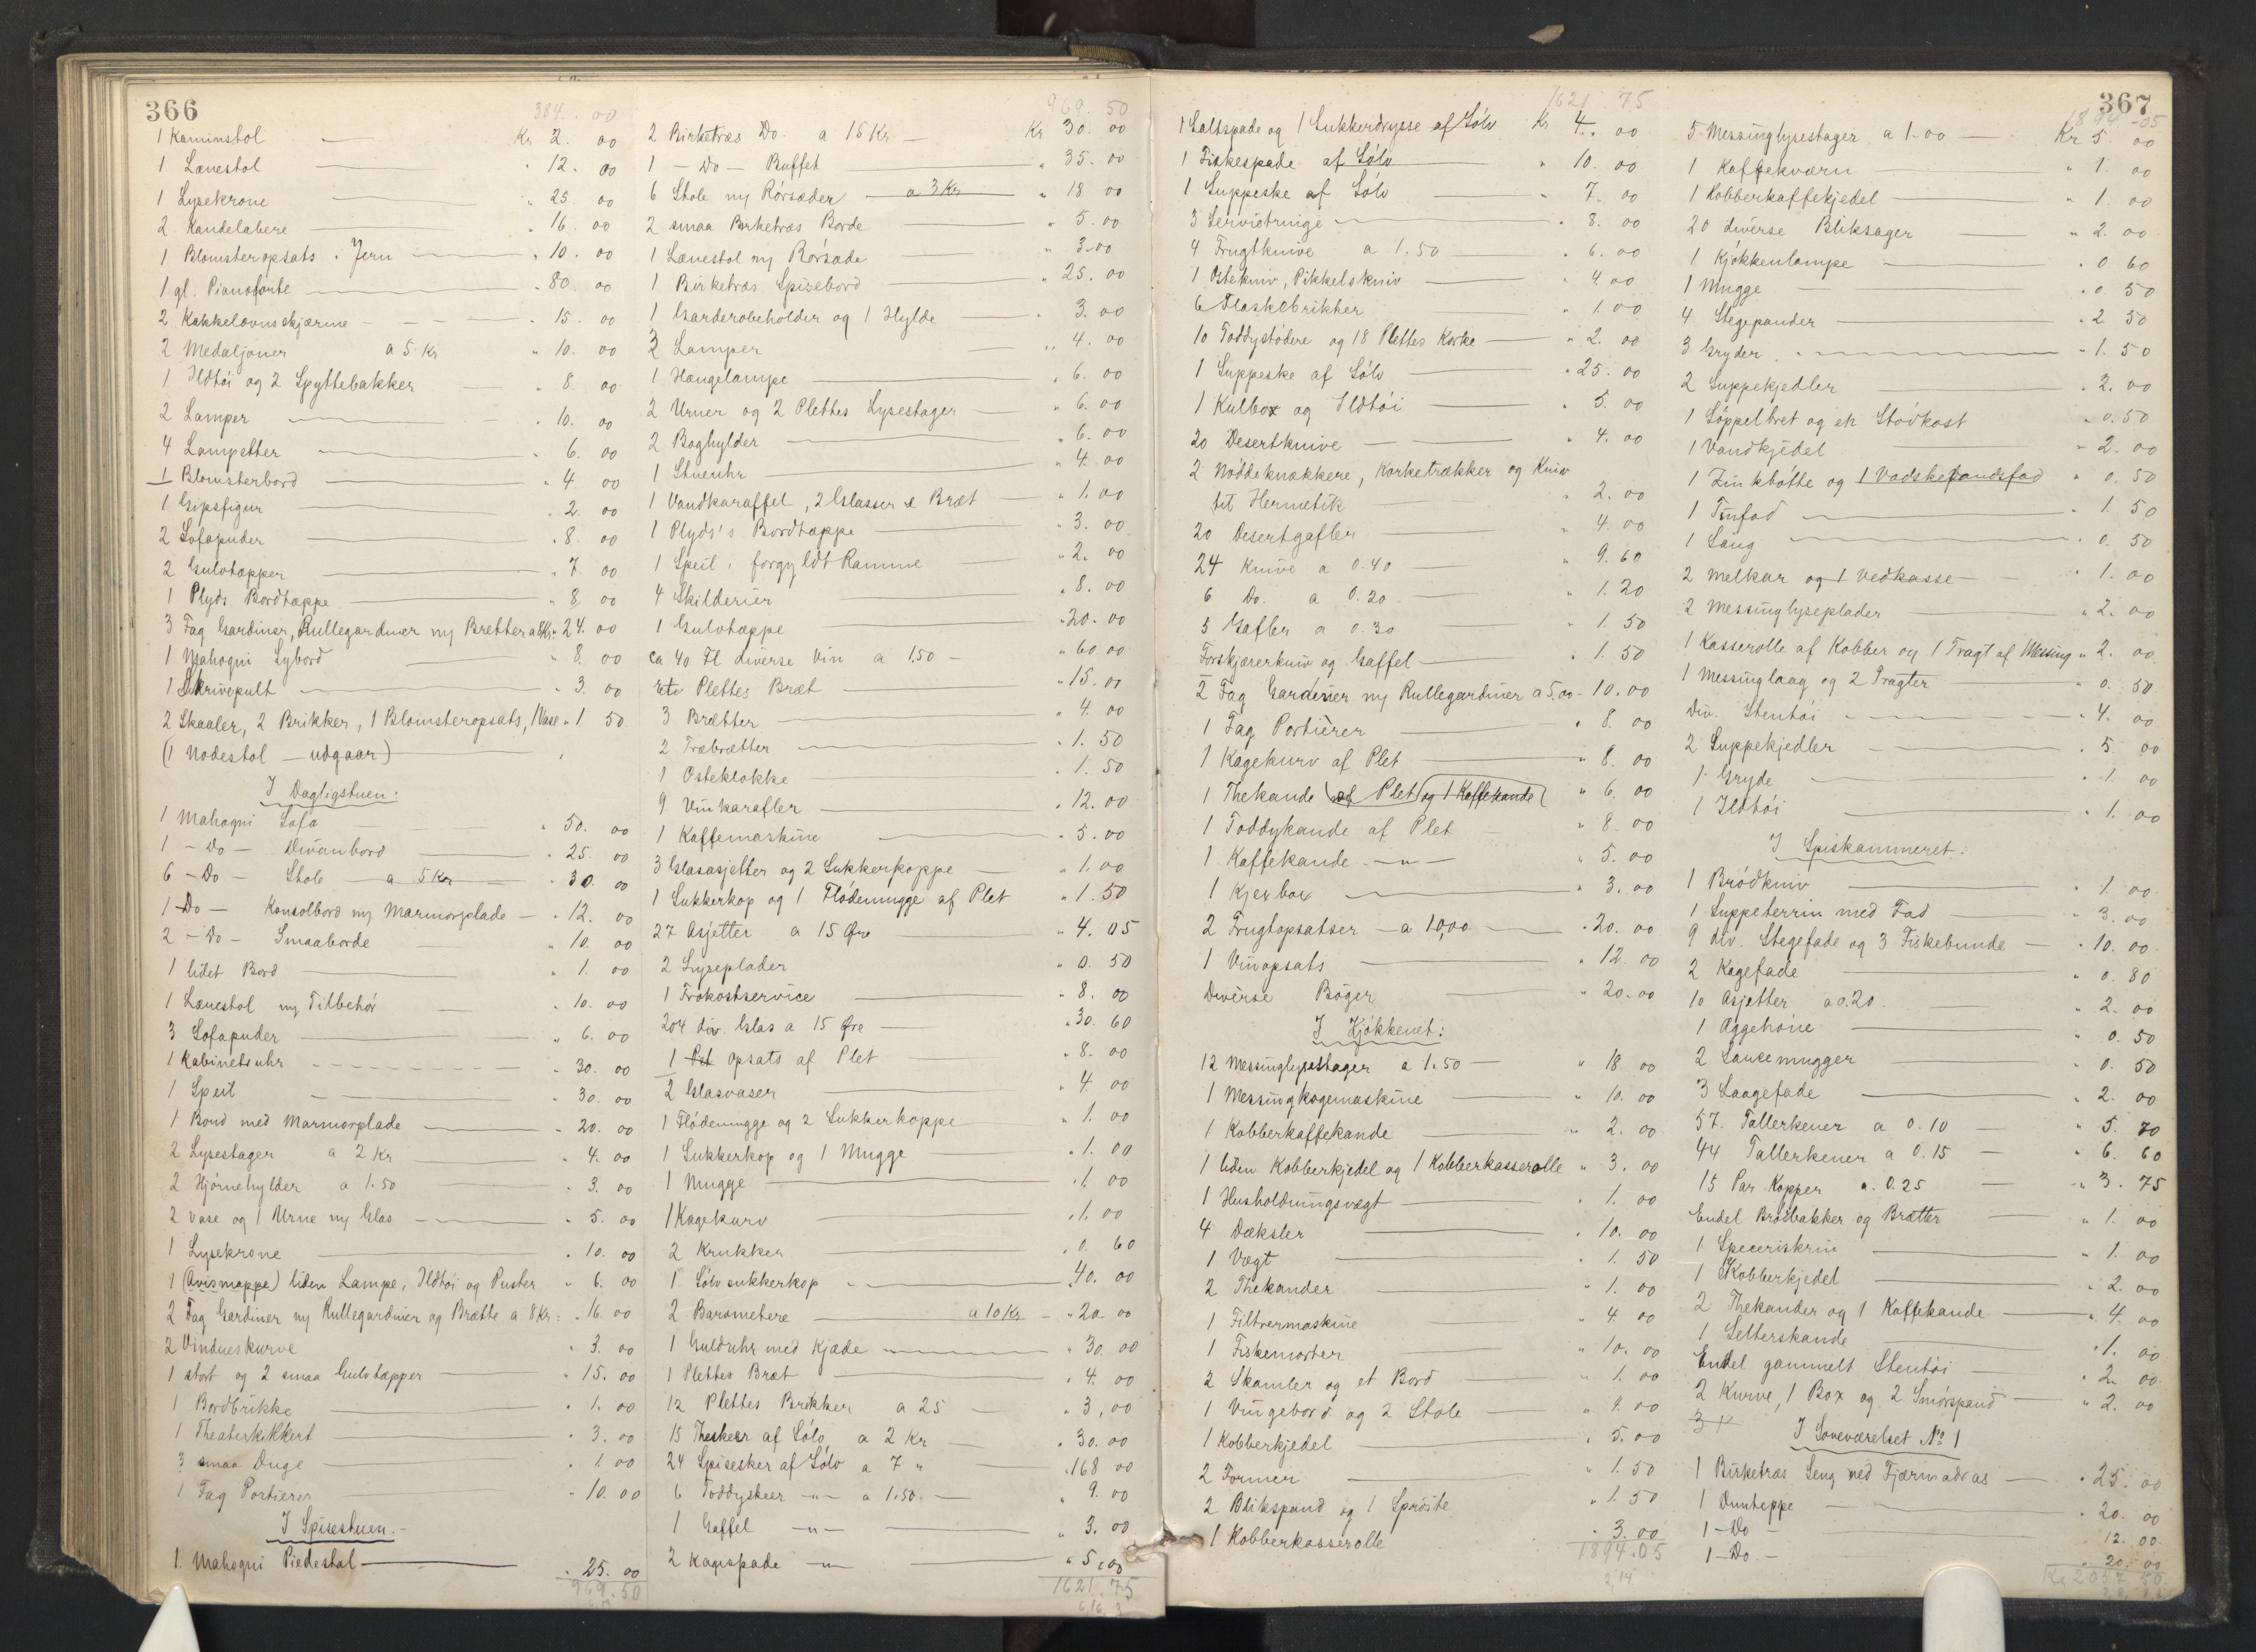 366
384.00
1 Kaminstol — Kr 2.00
1 Lænestol — " 12.00
1 Lysekrone — " 25.00
2 Kandelabere — " 16.00
1 Blomsteropsats i Jern — " 10.00
1 gl. Pianoforte — " 80.00
2 Kakkelovnsskjærme — " 15.00
2 Medaljoner a 5 Kr " 10.00
1 Ildtöi og 2 Spyttebakker — " 8.00
2 Lamper — " 10.00
4 Lampetter — " 6.00
1 Blomsterbord — " 4.00
1 Gipsfigur — " 2.00
2 Sofapuder — " 8.00
2 Gulvtæpper — " 7.00
1 Plyds Bordtæppe — " 8.00
3 Fag Gardiner, Rullegardiner m/ Bretter a 8 Kr " 24.00
1 Mahogni Sybord — " 8.00
1 Skrivepult — " 3.00
2 Skaaler, 2 Brikker, 1 Blomsteropsats, 1 Vase " 1 50
(1 Nodestol — udgaar)
I Dagligstuen:
1 Mahogni Sofa " 50.00
1 - Do - Divanbord — " 25.00
6 - Do - Stole — a 5 Kr — " 30.00
1 - Do - Konsolbord m/ Marmorplade — " 12.00
2 - Do - Smaaborde — " 10.00
1 lidet Bord — " 1.00
1 Lænestol m/ Tilbehör " 10.00
3 Sofapuder — " 6.00
1 Kabinetsuhr — " 30.00
1 Speil — " 30.00
1 Bord med Marmorplade — " 20.00
2 Lysestager a 2 Kr — " 4.00
2 Hjörnehylder a 1.50 — " 3.00
2 Vase og 1 Urne m/ Glas — " 5.00
1 Lysekrone — " 10.00
1 (Avismappe) liden Lampe, Ildtöi og Puster " 6.00
2 Fag Gardiner m/ Rullegardiner og Brætte a 8 Kr = " 16.00
2 Vindueskurve " 3.00
1 stort og 2 smaa Gulvtæpper — " 15.00
1 Bordbrikke — " 1.00
1 Theaterkikkert — " 3.00
3 smaa Duge — " 1.00
1 Fag Portierer — " 10.00
I Spisestuen.-
1. Mahogni Piedestal — " 25.00
969.50
969.50
2 Birketræs Do. a 15 Kr — Kr 30.00
1 - Do - Buffet — " 35.00
6 Stole m/ Rörsæder — a 3 Kr — " 18.00
2 smaa Birketræs Borde — " 5.00
1 Lænestol m/ Rörsæde " 3.00
1 Birketræs Spisebord — " 25.00
1 Garderobeholder og 1 Hylde — " 3.00
2 Lamper — " 4.00
1 Hængelampe — " 6.00
2 Urner og 2 Plettes Lysestager — " 6.00
2 Boghylder — " 6.00
1 Stueuhr — " 4.00
1 Vandkaraffel, 2 Glasser & Bræt — " 1.00
1 Plyds's Bordtæppe — " 3.00
1 Speil i forgyldt Ramme — " 2.00
4 Skilderier — " 8.00
1 Gulvtæppe — " 20.00
ca 40 Fl diverse Vin a 1.50 — " 60.00
Etv Plettes Bræt — " 15.00
3 Brætter — " 4.00
2 Træbrætter — " 1.50
1 Osteklokke — " 1.50
9 Vinkarafler — " 12.00
1 Kaffemaskine — " 5.00
3 Glasasjetter og 2 Sukkerkoppe — " 1.00
1 Sukkerkop og 1 Flödemugge af Plet " 1.50
27 Asjetter a 15 Øre — " 4.05
2 Lyseplader " 0.50
1 Frokostservice — " 8.00
204 div. Glas a 15 Øre — " 30.60
1 Opsats af Plet " 8.00
2 Glasvaser — " 4.00
1 Flödemugge og 2 Sukkerkoppe — " 1.00
1 Sukkerkop og 1 Mugge — " 1.00
1 Mugge — " 1.00
1 Kagekurv — " 1.00
2 Krukker — " 0.60
1 Sölvsukkerkop — " 40.00
2 Barometere — a 10 Kr — " 20.00
1 Gulduhr med Kjæde — " 30.00
1 Plettes Bræt — " 4.00
12 Plettes Brikker a 25 — " 3,00
15 Theskeer af Sölv a 2 Kr — " 30.00
24 Spiseskeer af Sölv a 7 " — " 168.00
6 Toddyskeer -"- a 1.50. — " 9.00
1 Gaffel -"- — " 3.00
2 Kagespade -"- — " 5,00
1621.75
367
1621.75
1 Saltspade og 1 Sukkerdrysse af Sölv Kr 4.00
1 Fiskespade af Sölv — " 10.00
1 Suppeske af Sölv — " 7.00
3 Servietringe — " 8.00
4 Frugtknive a 1.50 — " 6.00
1 Ostekniv, Pikkelskniv — " 4.00
6 Flaskebrikker " 1.00
10 Toddystödere og 18 Plettes Korke — " 2.00
1 Suppeske af Sölv — " 25.00
1 Kulbox og Ildtöi — " 5.00
20 Desertknive — " 4.00
2 Nöddeknækkere, Korketrækker og Kniv
til Hermetik — " 2.00
20 Desertgafler — " 4.00
24 Knive a 0.40 — " 9.60
6 Do. a 0.20 — " 1.20
5 Gafler a 0.30 — " 1.50
Forskjærerkniv og Gaffel — " 1.50
2 Fag Gardiner m/ Rullegardiner a 5.00 - 10.00
1 Fag Portierer — " 8.00
1 Kagekurv af Plet — " 8.00
1 Thekande (af Plet og 1 Kaffekande) " 6.00
1 Toddykande af Plet — " 8.00
1 Kaffekande -"- " 5.00
1 Kjexbox — " 3.00
2 Frugtopsatser — a 10,00 — " 20.00
1 Vinopsats — " 12.00
Diverse Böger — " 20.00
I Kjökkenet:
12 Messinglysestager a 1.50 — " 18.00
1 Messingkogemaskine — " 10.00
1 Kobberkaffekande — " 2.00
1 liden Kobberkjedel og 1 Kobberkasserolle " 3.00
1 Husholdningsvægt — " 1.00
4 Dæksler — " 10.00
1 Vægt — " 1.50
2 Thekander — " 1.00
1 Filtrermaskine — " 4.00
1 Fiskemorter — " 10.00
2 Skamler og et Bord — " 1.00
1 Vingebord og 2 Stole — " 4.00
1 Kobberkjedel — " 5.00
2 Former — " 1.50
2 Blikspand og 1 Sproite " 1.50
1 Kobberkasserolle " 3.00
1894.05
1894-05
5 Messinglysestager a 1.00 — Kr 5.00
1 Kaffekværn — " 1.00
1 Kobberkaffekjedel — " 1.00
20 diverse Bliksager — " 2.00
1 Kjökkenlampe — " 0.60
1 Mugge — " 0.50
4 Stegepander — " 2.50
3 Gryder — " 1.50
2 Suppekjedler — " 2.00
1 Söppelbret og en Stövkost " 0.50
1 Vandkjedel — " 2.00
1 Zinkbötte og 1 Vadskevandsfad " 0.50
1 Tinfad — " 1.50
1 Saug — " 0.50
2 Melkar og 1 Vedkasse — " 1.00
2 Messinglyseplader — " 2.00
1 Kasserolle af Kobber og 1 Tragt af Messing " 2.00
1 Messinglaag og 2 Tragter — " 0.50
Div. Stentöi — " 4.00
2 Suppekjedler — " 5.00
1 Gryde — " 1.00
1 Ildtöi — " 1.00
I Spiskammeret:
1 Brödkniv — " 1.00
1 Suppeterrin med Fad — " 3.00
9 div. Stegefade og 3 Fiskebunde — " 10.00
2 Kagefade — " 0.80
10 Asjetter a 0.20. — " 2.00
1 Æggehöne — " 0.50
2 Saucemugger — " 0.50
3 Laagefade — " 2.00
57. Tallerkener a 0.10 — " 5.70
44 Tallerkener a 0.15 — " 6.60
15 Par Kopper a 0.25 — " 3.75
Endel Brödbakker og Brætter — " 1.00
1 Speceriskrin — " 1.00
1 Kobberkjedel — " 2.00
2 Thekander og 1 Kaffekande — " 4.00
1 Selterskande — " 1.00
Endel gammelt Stentöi — " 2.00
2 Kurve, 1 Box og 2 Smörspand — " 2.00
I Soveværelset No 1
1 Birketræs Seng med Fjærmadras — " 25.00
1 Dunteppe — " 20.00
1 - Do - — " 12.00
1 - Do. - — " 20.00
Kr 2057.50